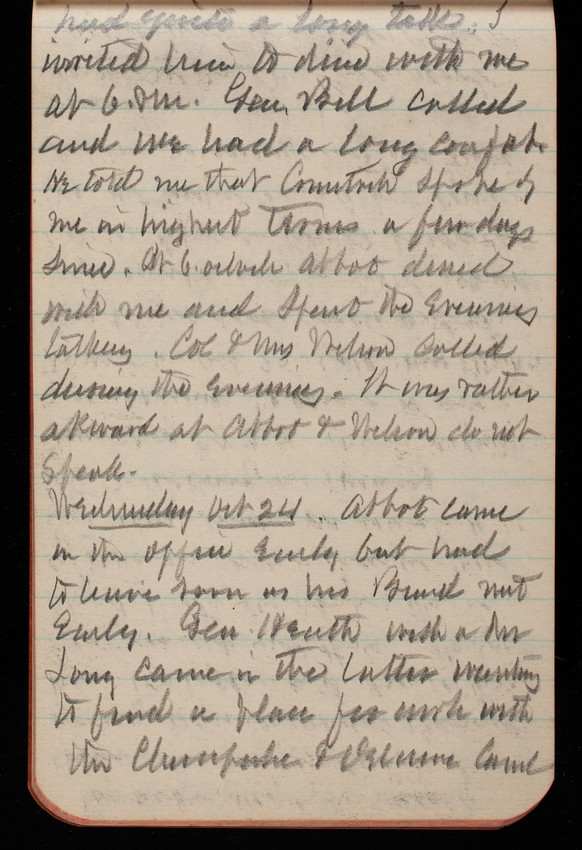 had quite a long talk. I
invited him to dine with me
at 6. P.M. Gen. Bell called
and we had a long confab.
He told me that Comstock spoke of
me in highest terms a few days
since. At 6. oclock Abbot dined
with me and spent the Evening
talking. Col & Mrs Nelson called
during the Evening. It was rather
akward as Abbot & Nelson do not
speak.
Wednesday Oct 24. Abbot came
in the office Early but had
to leave soon as his Board met
Early. Gen Heath with a Mr
Long came in the latter wanting
to find a place for work with
the Chesapeake & Delaware Canal